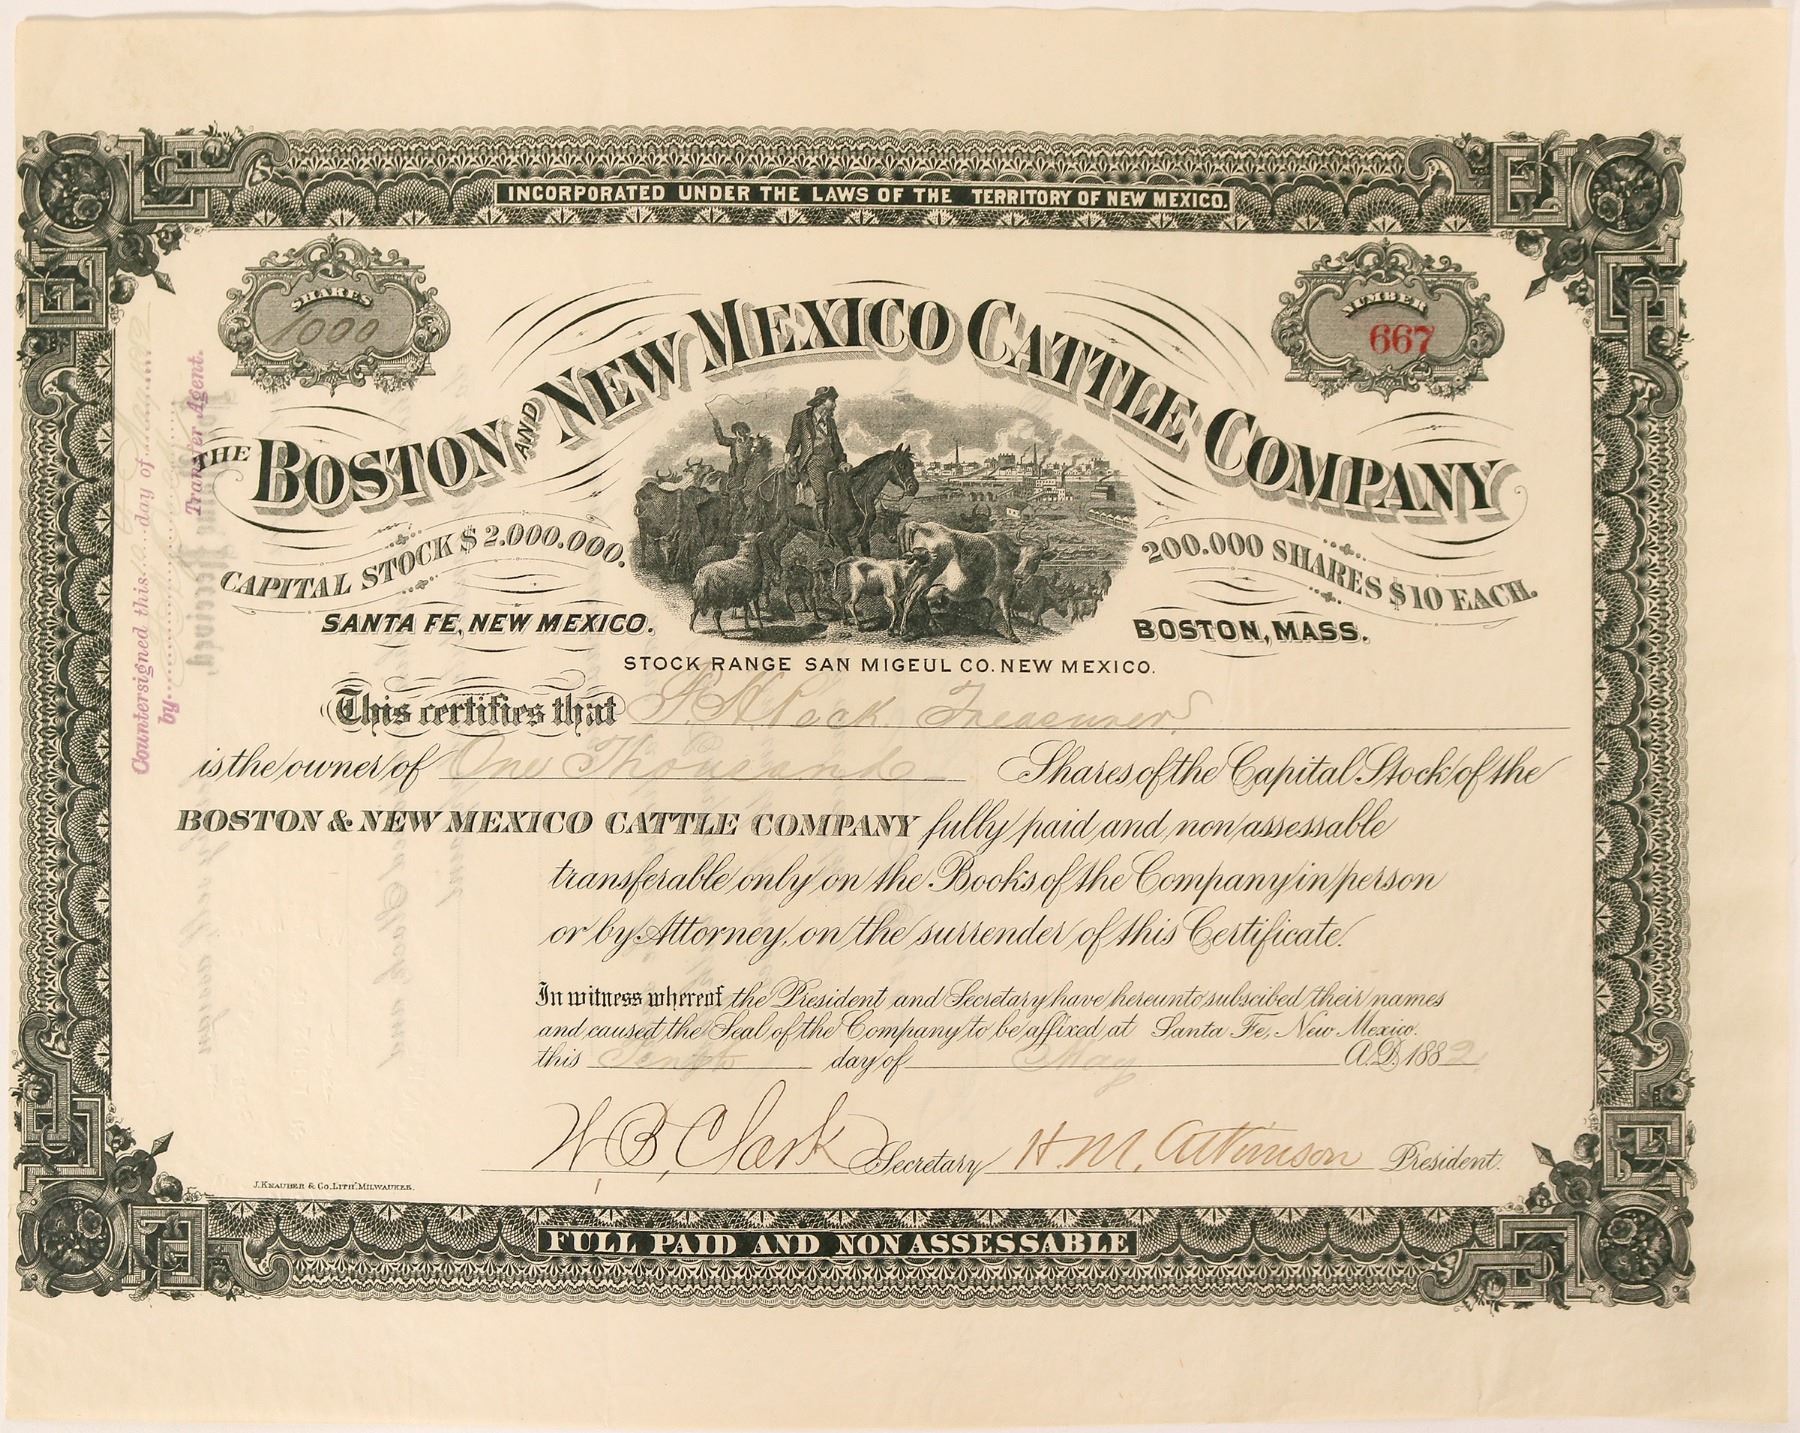 INCORPORATED UNDER THE LAWS OF THE TERRITORY OF NEW MEXICO.
SHARES
1000
NUMBER
667
THE BOSTON AND NEW MEXICO CATTLE COMPANY
CAPITAL STOCK $2.000.000.
200.000 SHARES $10 EACH.
SANTA FE, NEW MEXICO.
BOSTON, MASS.
STOCK RANGE SAN MIGEUL CO. NEW MEXICO.
This certifies that F. H. Peck Treasurer
is the owner of One Thousand Shares of the Capital Stock of the
BOSTON & NEW MEXICO CATTLE COMPANY fully paid and non assessable
transferable only on the Books of the Company in person
or by Attorney, on the surrender of this Certificate.
In witness whereof the President and Secretary have hereunto subscibed their names
and caused the Seal of the Company to be affixed at Santa Fe, New Mexico.
this Tenth day of May A.D. 1882
W B, Clark Secretary H. M. Atkinson President.
J. KNAUBER & CO. LITH. MILWAUKEE.
FULL PAID AND NONASSESSABLE
Countersigned this 10 day of May 1882
by
Transfer Agent.